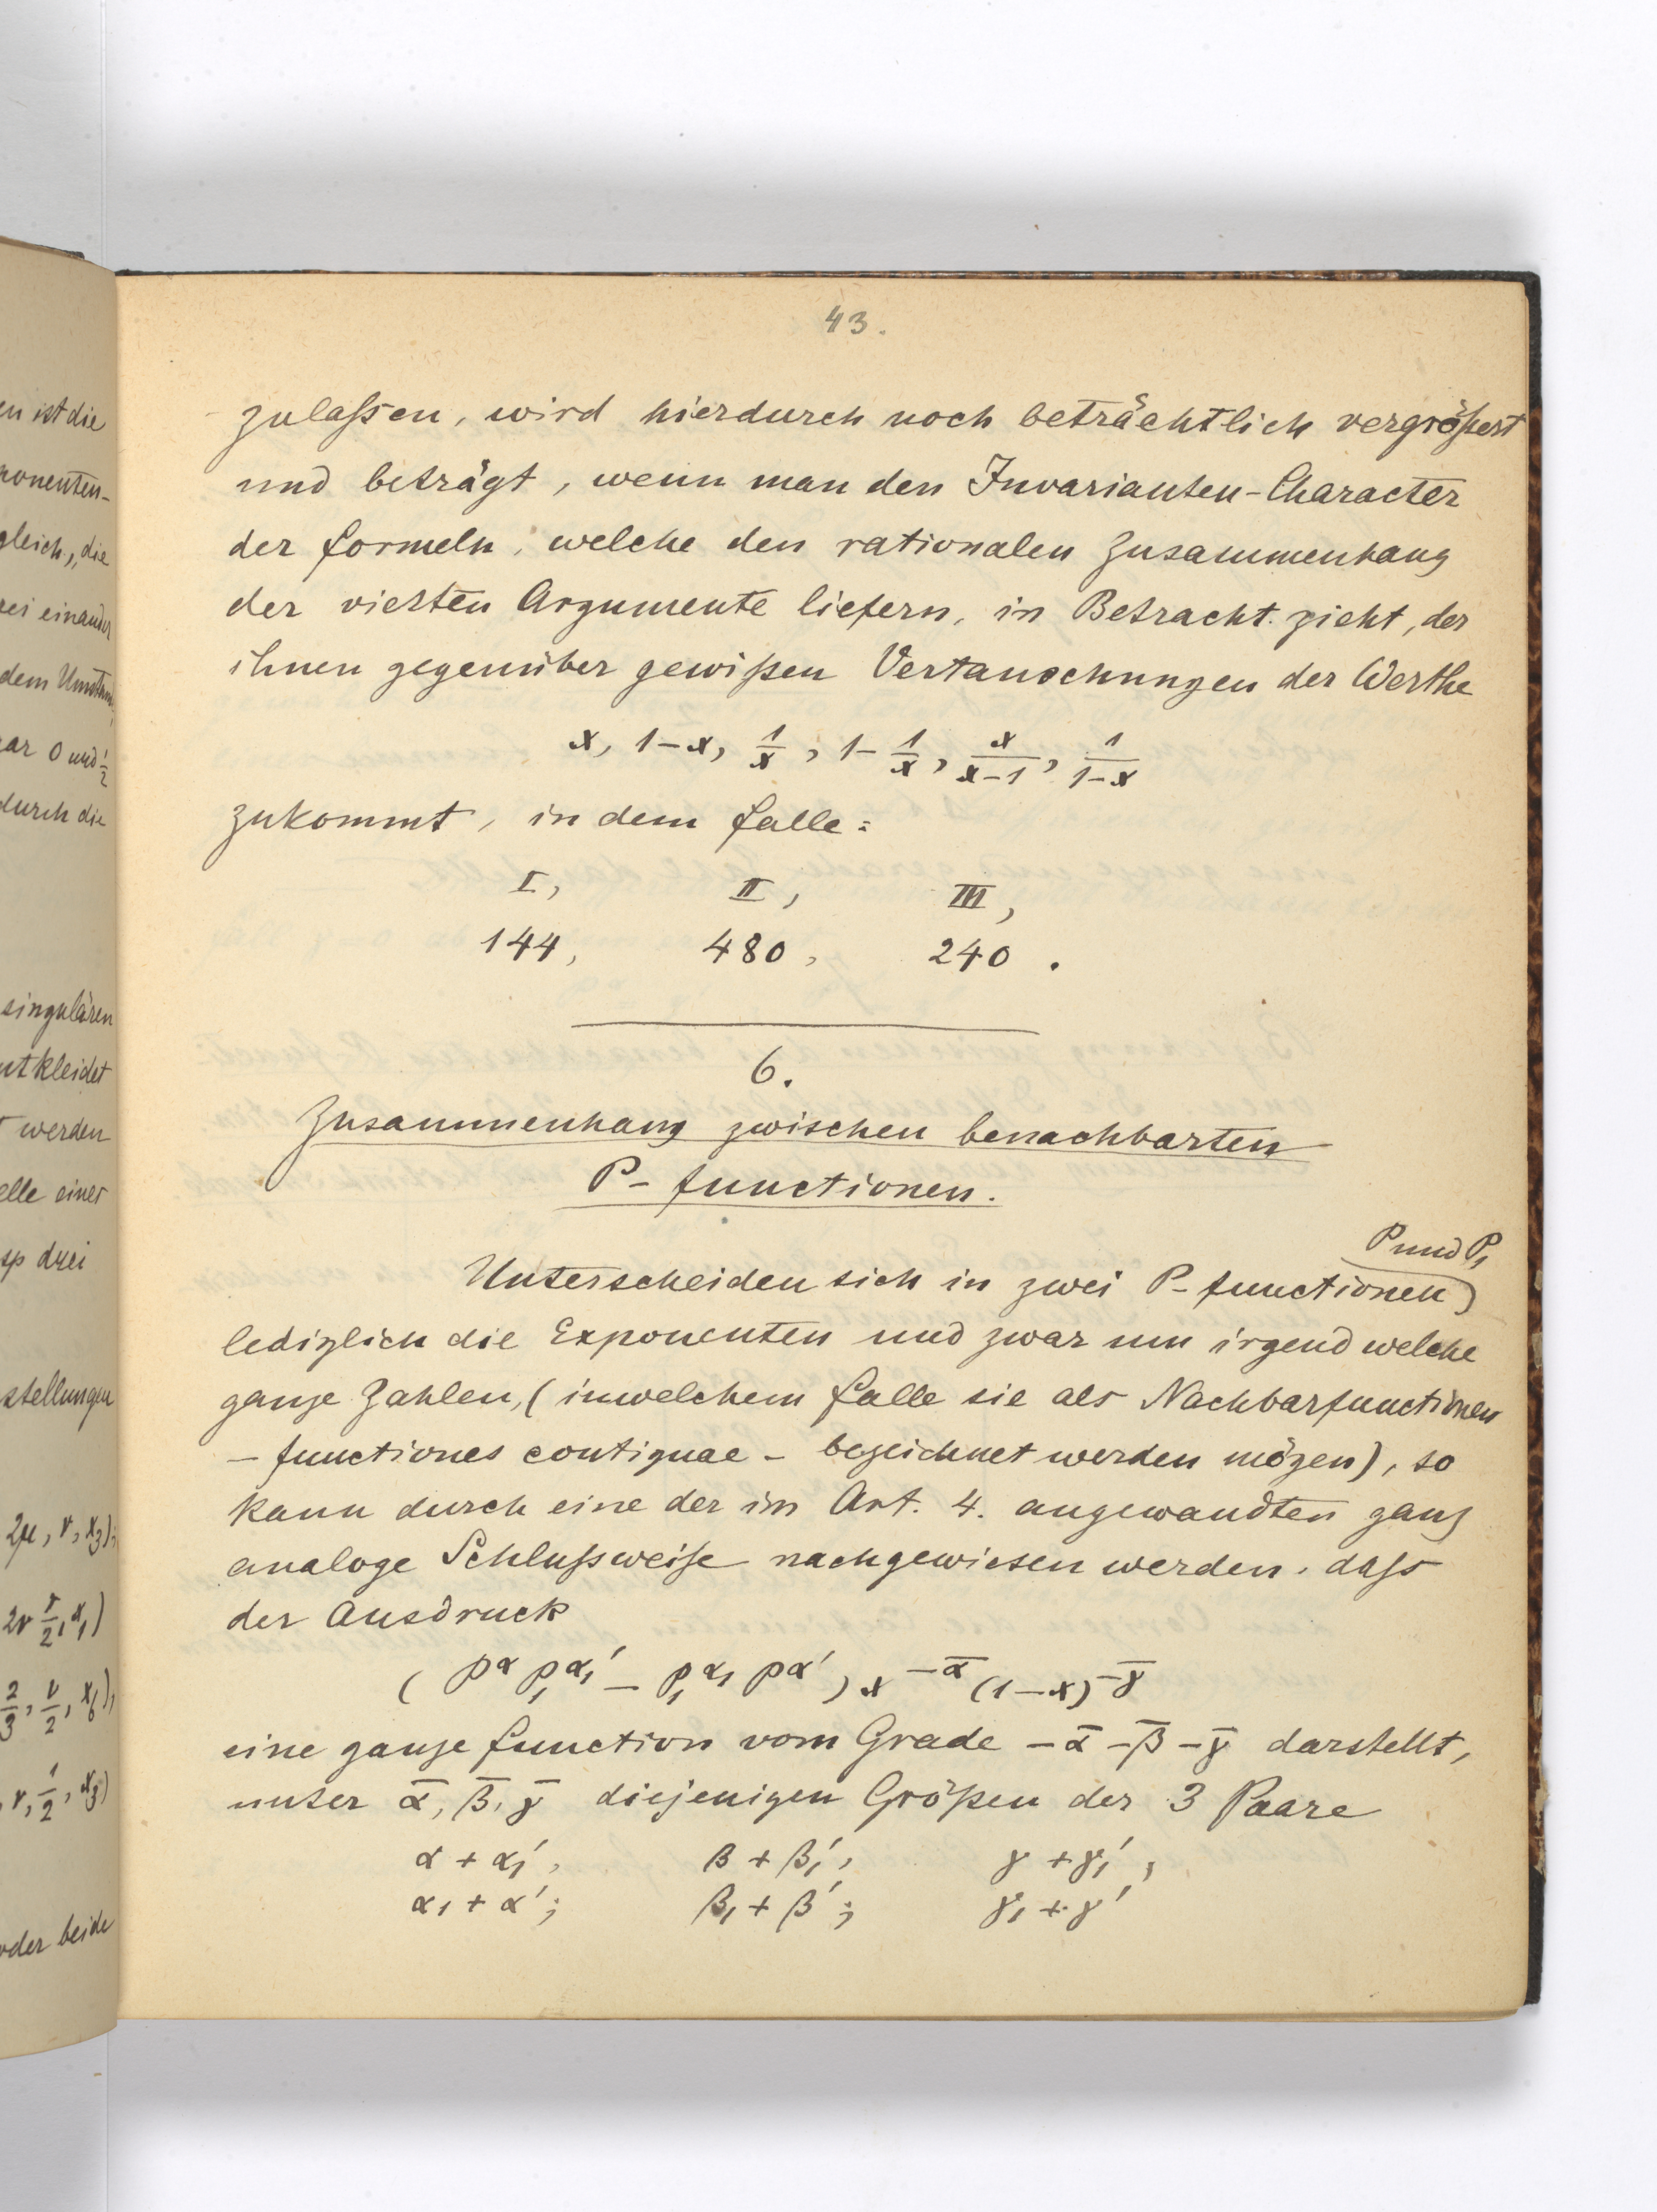 en ist die
ponenten-
gleich, die
rei einander
dem Umstand,
gar 0 und 1/2
durch die
singulären
ntkleidet
werden
elle einer
sp drei
stellungen
2μ, ν, x₃);
2ν, ν/2, x₁)
2/3, ν/2, x₆),
, ν, 1/2, x₃)
oder beide
43.
zulaßen, wird hierdurch noch beträchtlich vergrößert
und beträgt, wenn man den Invarianten-Character
der Formeln, welche den rationalen Zusammenhang
der vierten Argumente liefern, in Betracht zieht, der
ihnen gegenüber gewißen Vertauschungen der Werthe
x, 1-x, 1/x, 1-1/x, x/(x-1), 1/(1-x)
zukommt, in dem Falle:
I, II, III,
144, 480, 240.
6.
Zusammenhang zwischen benachbarten
P-Functionen.
P und P₁
Unterscheiden sich in zwei P-Functionen
lediglich die Exponenten und zwar um irgend welche
ganze Zahlen, (in welchem Falle sie als Nachbarfunctionen
- functiones contiguae - bezeichnet werden mögen), so
kann durch eine der im Art. 4. angewandten ganz
analoge Schlußweise nachgewiesen werden, daß
der Ausdruck
(P^α P₁^α₁′ − P₁^α₁ P^α′) x^−ᾱ (1−x)^−γ̄
eine ganze Function vom Grade −ᾱ −β̄ −γ̄ darstellt,
unter ᾱ, β̄, γ̄ diejenigen Größen der 3 Paare
α + α₁′, β + β₁′, γ + γ₁′,
α₁ + α′; β₁ + β′; γ₁ + γ′